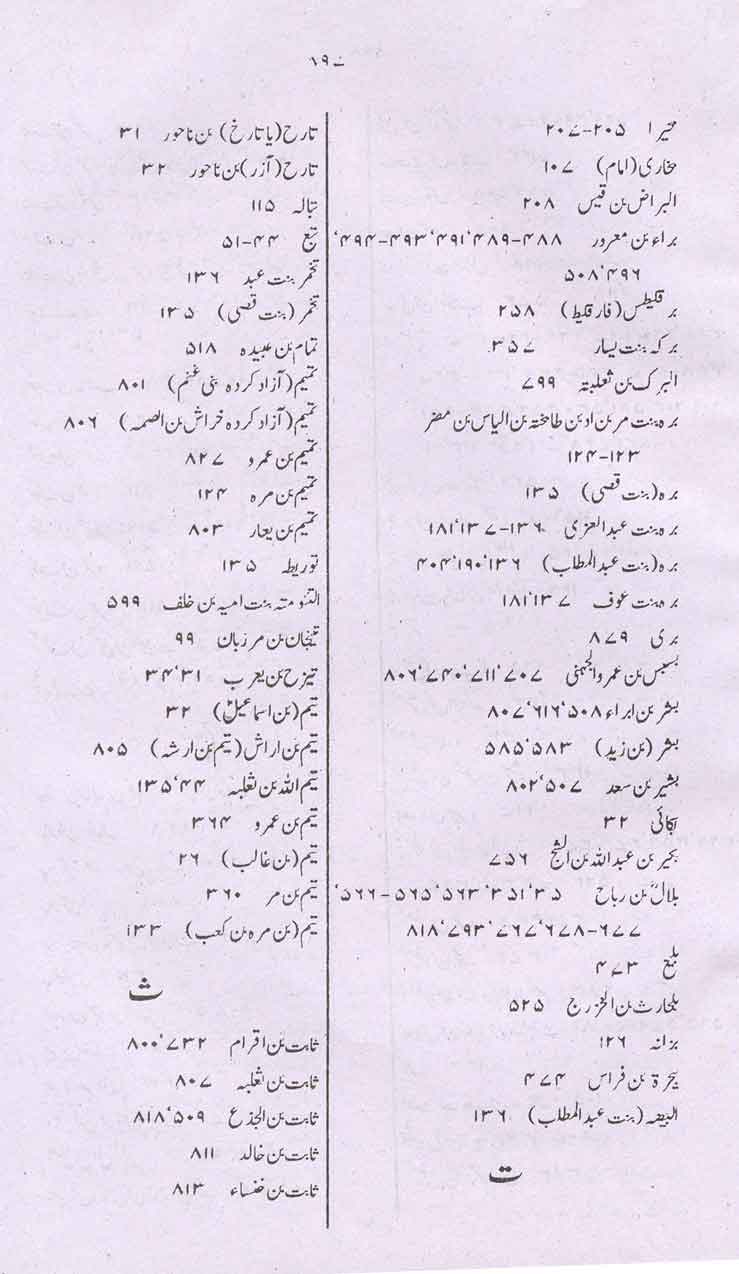 ۱۹۷
بحیرا ۲۰۵-۲۰۷
بخاری (امام) ۱۰۷
البراض بن قیس ۲۰۸
براء بن معرور ۴۸۸-۴۸۹٬۴۹۱٬۴۹۳-۴۹۴٬
۴۹۶٬۵۰۸
برقلیطس (فارقلیط) ۲۵۸
برکہ بنت یسار ۳۵۷
البرک بن ثعلبتہ ۷۹۹
برہ بنت مر بن اد بن طابختہ بن الیاس بن مضر
۱۲۳-۱۲۴
برہ (بنت قصی) ۱۳۵
برہ بنت عبدالعزی ۱۳۶-۱۳۷٬۱۸۱
برہ (بنت عبدالمطلب) ۱۳۶٬۱۹۰٬۴۰۴
برہ بنت عوف ۱۳۷٬۱۸۱
بری ۸۷۹
بسبس بن عمرو الجہنی ۷۰۷٬۷۱۱٬۷۴۰٬۸۰۶
بشر بن ابراء ۵۰۸٬۶۱۶٬۸۰۷
بشر (بن زید) ۵۸۳٬۵۸۵
بشیر بن سعد ۵۰۷٬۸۰۲
بکائی ۳۲
بجیر بن عبداللہ بن الشج ۷۵۶
بلالؓ بن رباح ۳۵٬۳۵۱٬۵۶۳٬۵۶۵-۵۶۶٬
۶۷۷-۶۷۸٬۷۶۷٬۷۹۳٬۸۱۸
بلیع ۴۷۳
بلحارث بن الخزرج ۵۲۵
بزانہ ۱۲۶
بیحرۃ بن فراس ۴۷۴
البیضہ (بنت عبدالمطلب) ۱۳۶
ت
تارح (یا تارخ) بن ناحور ۳۱
تارح (آزر) بن ناحور ۳۲
تبالہ ۱۱۵
تبع ۴۴-۵۱
تخمر بنت عبد ۱۳۶
تخمر (بنت قصی) ۱۳۵
تمام بن عبیدہ ۵۱۸
تمیم (آزاد کردہ بنی غنم) ۸۰۱
تمیم (آزاد کردہ خراش بن الصمہ) ۸۰۶
تمیم بن عمرو ۸۲۷
تمیم بن مرہ ۱۲۴
تمیم بن یعار ۸۰۳
توریطہ ۱۳۵
التئومتہ بنت امیہ بن خلف ۵۹۹
تیجان بن مرزبان ۹۹
تیزح بن یعرب ۳۱٬۳۴
تیم (بن اسماعیلؑ) ۳۲
تیم بن اراش (تیم بن ارشہ) ۸۰۵
تیم اللہ بن ثعلبہ ۴۴٬۱۳۵
تیم بن عمرو ۳۶۴
تیم (بن غالب) ۲۶
تیم بن مر ۳۶۰
تیم (بن مرہ بن کعب) ۱۳۳
ث
ثابت بن اقرام ۷۳۲٬۸۰۰
ثابت بن ثعلبہ ۸۰۷
ثابت بن الجذع ۵۰۹٬۸۱۸
ثابت بن خالد ۸۱۱
ثابت بن خنساء ۸۱۳